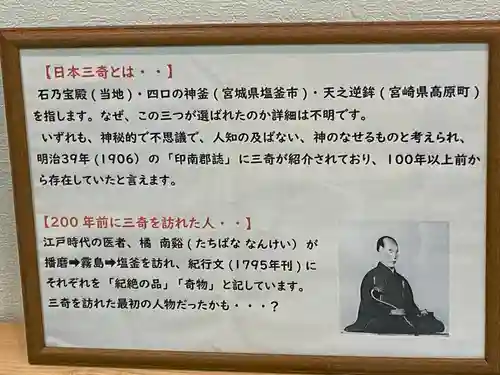 【日本三奇とは・・】
石乃宝殿(当地)・四口の神釜(宮城県塩釜市)・天之逆鉾(宮崎県高原町)
を指します。なぜ、この三つが選ばれたのか詳細は不明です。
いずれも、神秘的で不思議で、人知の及ばない、神のなせるものと考えられ、
明治39年(1906)の「印南郡誌」に三奇が紹介されており、100年以上前か
ら存在していたと言えます。
【200年前に三奇を訪れた人・・】
江戸時代の医者、橘 南谿(たちばな なんけい)が
播磨➡霧島➡塩釜を訪れ、紀行文(1795年刊)に
それぞれを「紀絶の品」「奇物」と記しています。
三奇を訪れた最初の人物だったかも・・・?